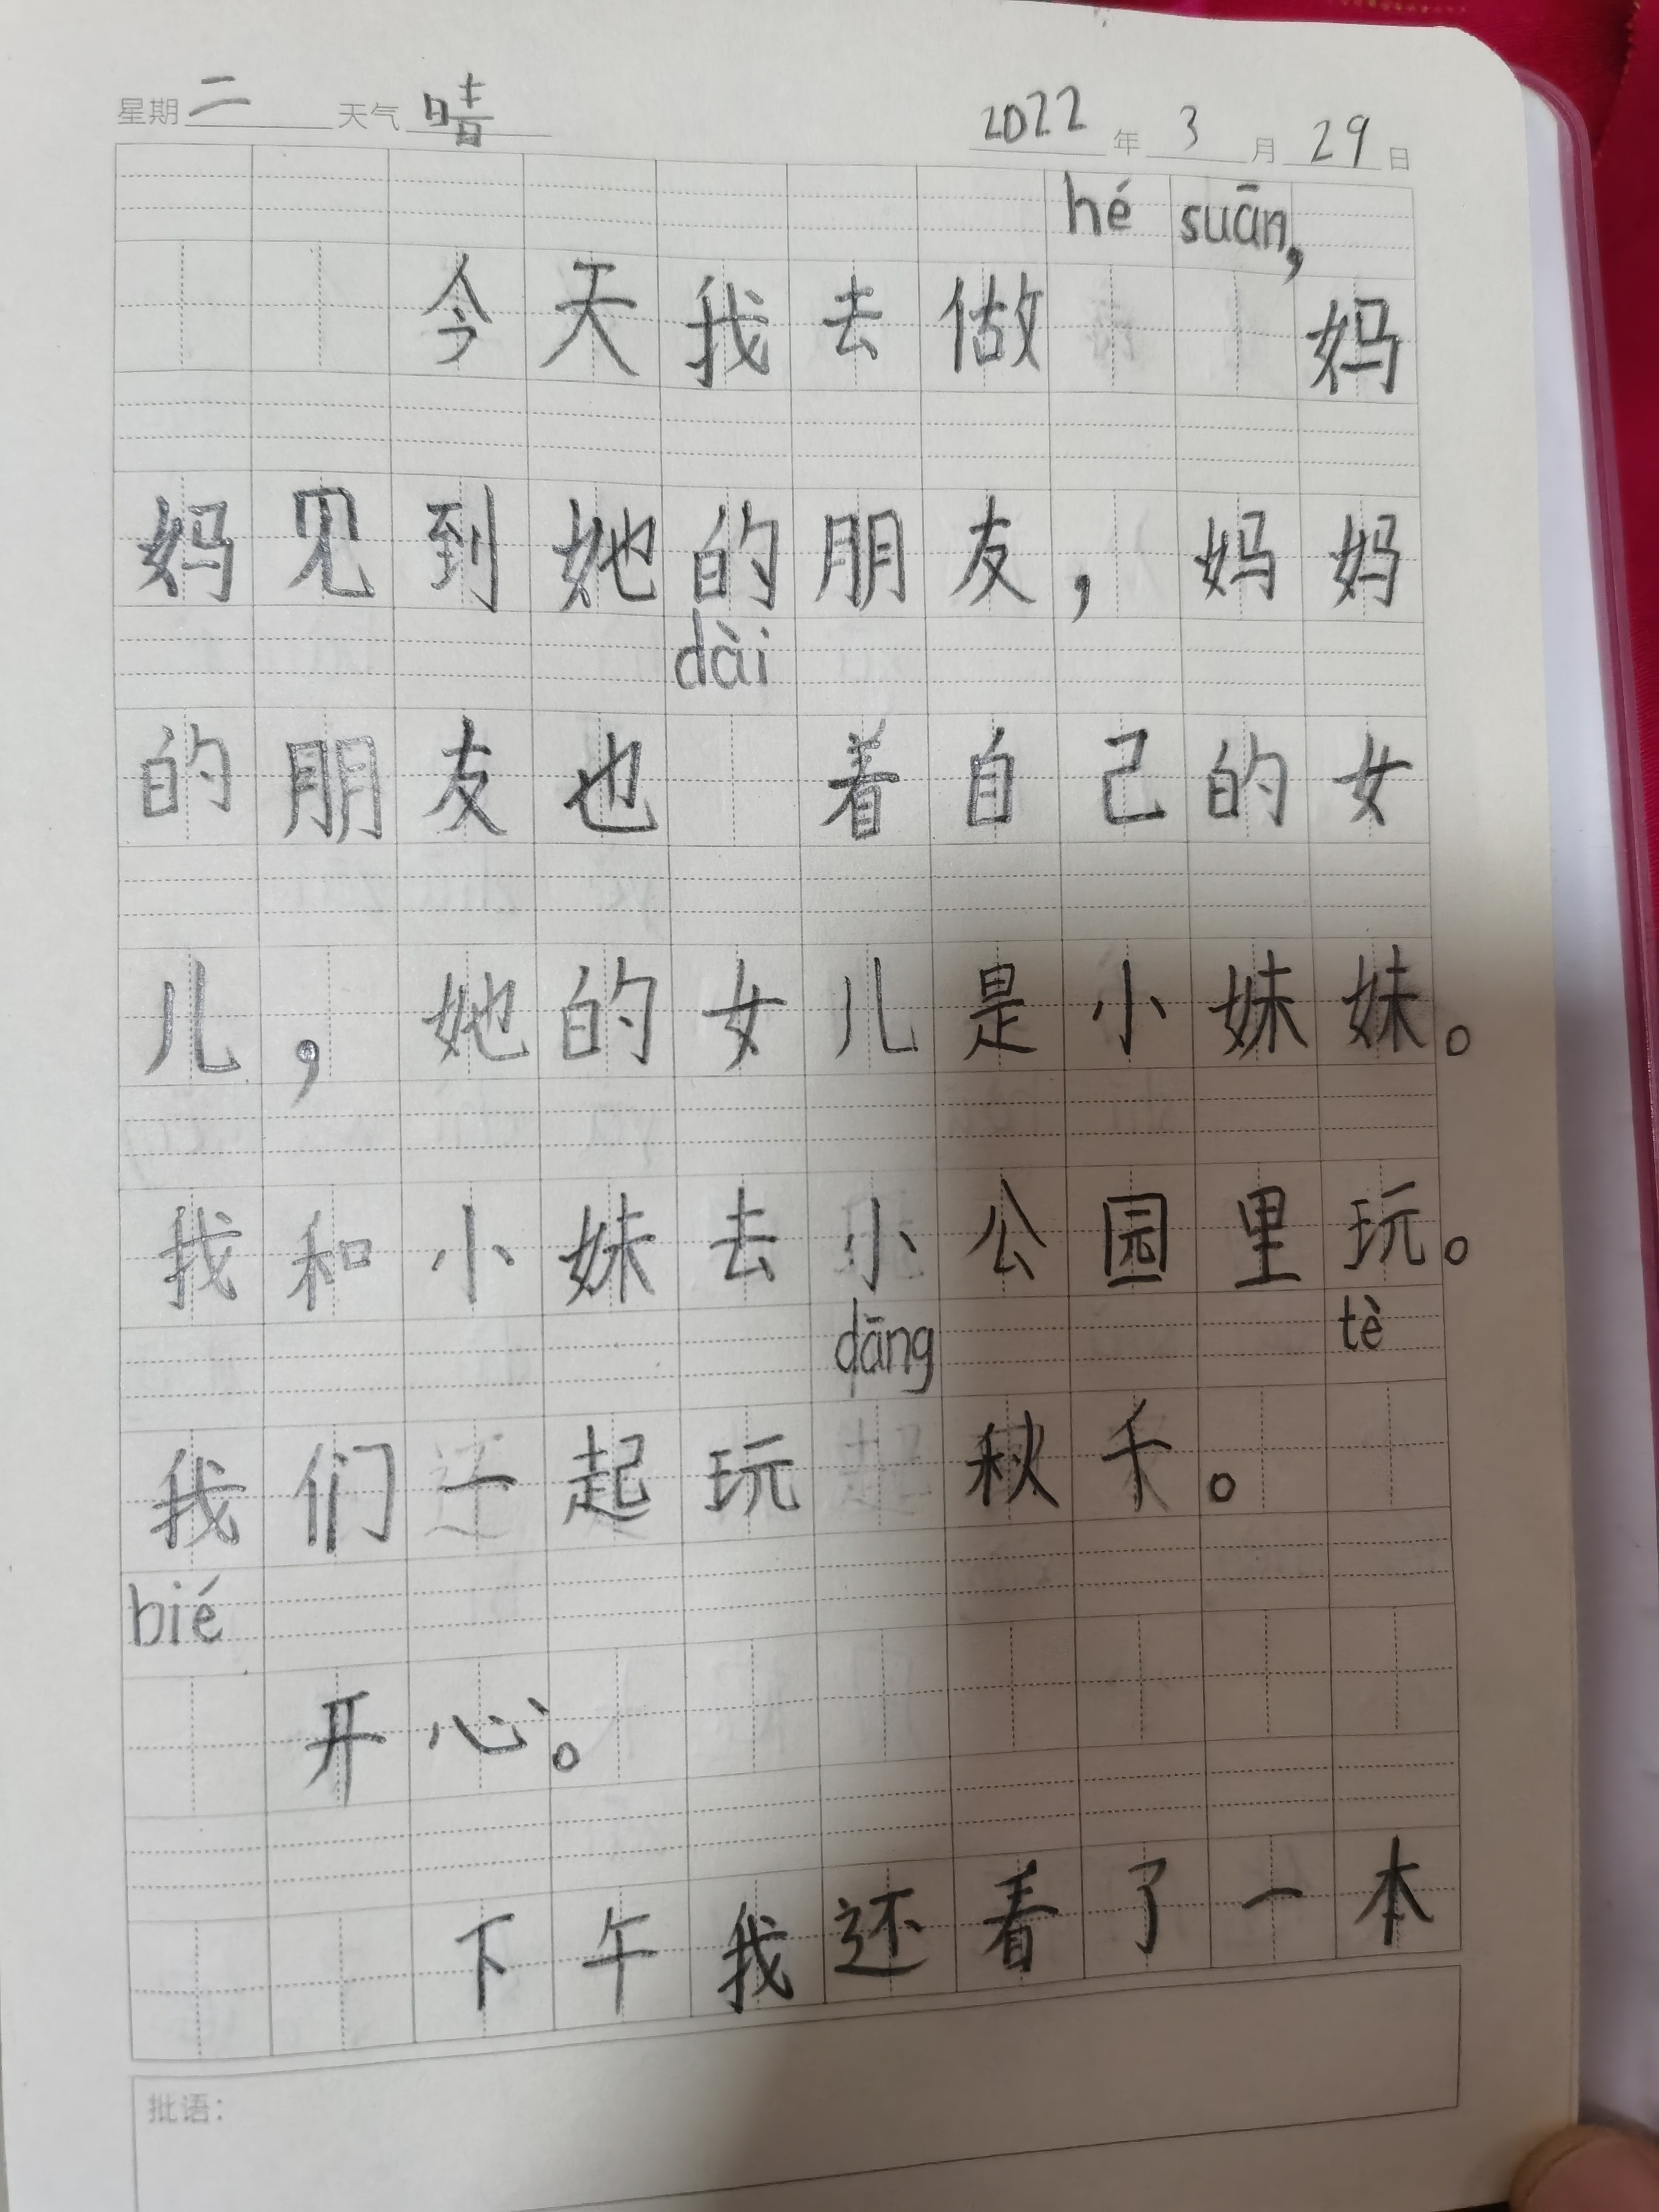 星期二 天气晴 2022年3月29日
hé suān,
今天我去做 妈
妈见到她的朋友，妈妈
dài
的朋友也 着自己的女
儿，她的女儿是小妹妹。
我和小妹去小公园里玩。
dāng tè
我们一起玩 秋千。
bié
开心。
下午我还看了一本
批语：